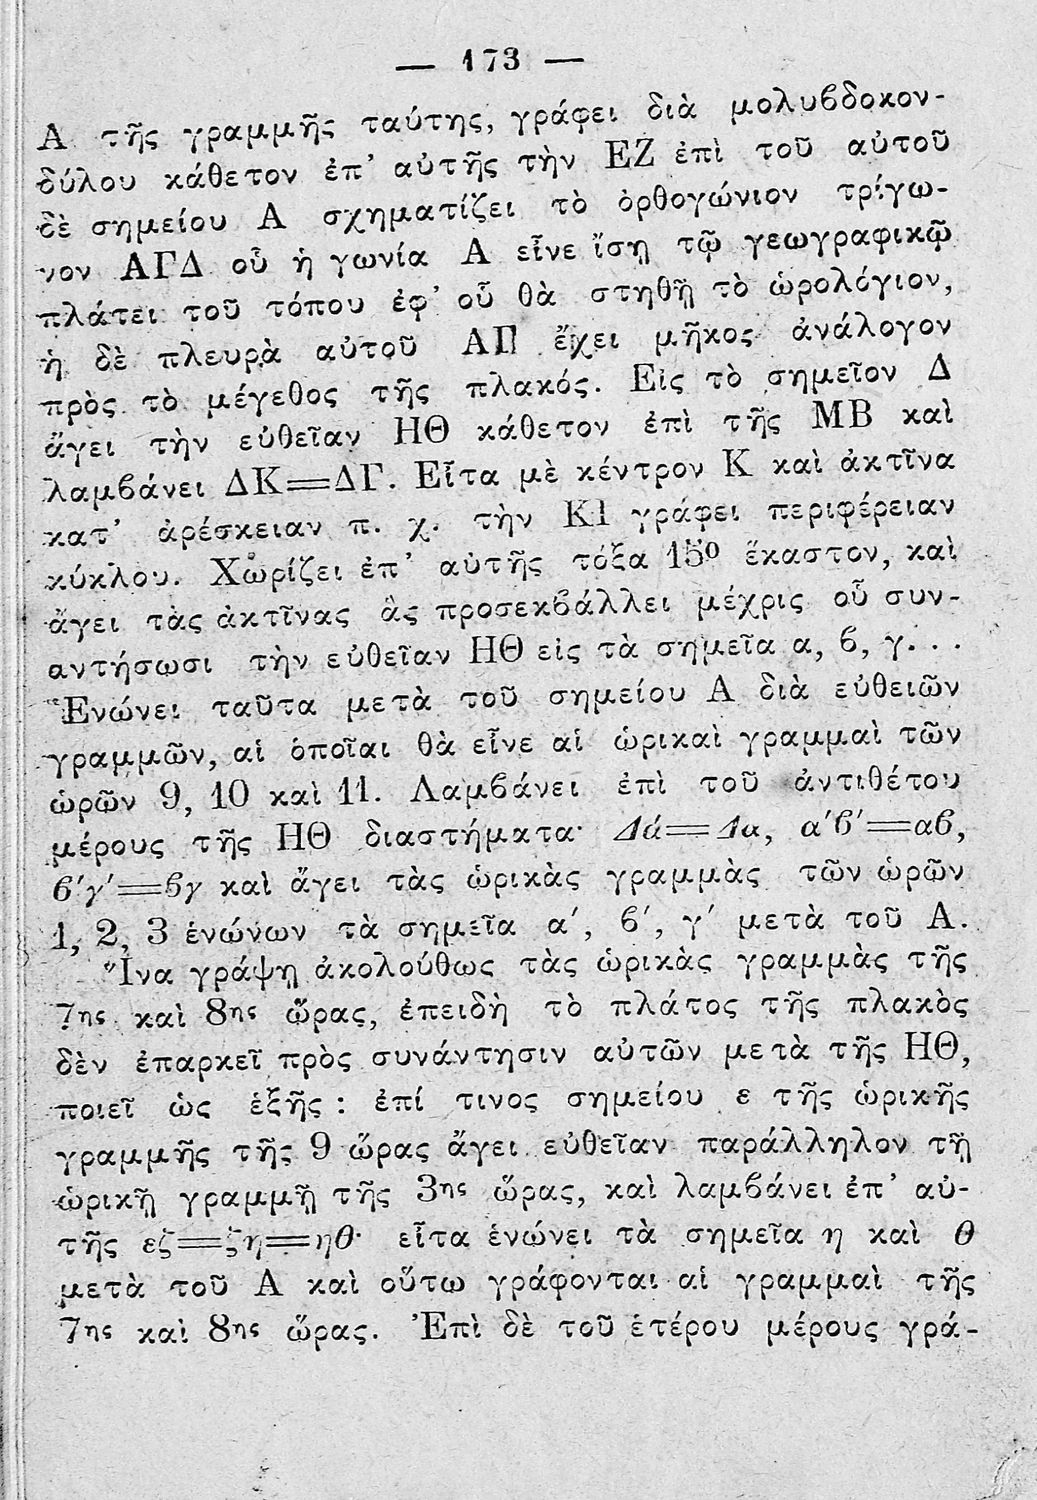 — 173 —
Α τῆς γραμμῆς ταύτης, γράφει διὰ μολυβδοκον-
δύλου κάθετον ἐπ' αὐτῆς τὴν ΕΖ ἐπὶ τοῦ αὐτοῦ
δὲ σημείου Α σχηματίζει τὸ ὀρθογώνιον τρίγω-
νον ΑΓΔ οὗ ἡ γωνία Α εἶνε ἴση τῷ γεωγραφικῷ
πλάτει τοῦ τόπου ἐφ' οὗ θὰ στηθῇ τὸ ὡρολόγιον,
ἡ δὲ πλευρὰ αὐτοῦ ΑΠ ἔχει μῆκος ἀνάλογον
πρὸς τὸ μέγεθος τῆς πλακός. Εἰς τὸ σημεῖον Δ
ἄγει τὴν εὐθεῖαν ΗΘ κάθετον ἐπὶ τῆς ΜΒ καὶ
λαμβάνει ΔΚ=ΔΓ. Εἶτα μὲ κέντρον Κ καὶ ἀκτῖνα
κατ' ἀρέσκειαν π. χ. τὴν ΚΙ γράφει περιφέρειαν
κύκλου. Χωρίζει ἐπ' αὐτῆς τόξα 15º ἕκαστον, καὶ
ἄγει τὰς ἀκτῖνας ἃς προσεκβάλλει μέχρις οὗ συν-
αντήσωσι τὴν εὐθεῖαν ΗΘ εἰς τὰ σημεῖα α, β, γ. . .
Ἑνώνει ταῦτα μετὰ τοῦ σημείου Α διὰ εὐθειῶν
γραμμῶν, αἱ ὁποῖαι θὰ εἶνε αἱ ὡρικαὶ γραμμαὶ τῶν
ὡρῶν 9, 10 καὶ 11. Λαμβάνει ἐπὶ τοῦ ἀντιθέτου
μέρους τῆς ΗΘ διαστήματα· Δά=Δα, α'β'=αβ,
β'γ'=βγ καὶ ἄγει τὰς ὡρικὰς γραμμὰς τῶν ὡρῶν
1, 2, 3 ἑνώνων τὰ σημεῖα α', β', γ' μετὰ τοῦ Α.
Ἵνα γράψῃ ἀκολούθως τὰς ὡρικὰς γραμμὰς τῆς
7ης καὶ 8ης ὥρας, ἐπειδὴ τὸ πλάτος τῆς πλακὸς
δὲν ἐπαρκεῖ πρὸς συνάντησιν αὐτῶν μετὰ τῆς ΗΘ,
ποιεῖ ὡς ἑξῆς : ἐπί τινος σημείου ε τῆς ὡρικῆς
γραμμῆς τῆς 9 ὥρας ἄγει εὐθεῖαν παράλληλον τῇ
ὡρικῇ γραμμῇ τῆς 3ης ὥρας, καὶ λαμβάνει ἐπ' αὐ-
τῆς εζ=ζη=ηθ· εἶτα ἑνώνει τὰ σημεῖα η καὶ θ
μετὰ τοῦ Α καὶ οὕτω γράφονται αἱ γραμμαὶ τῆς
7ης καὶ 8ης ὥρας. Ἐπὶ δὲ τοῦ ἑτέρου μέρους γρά-